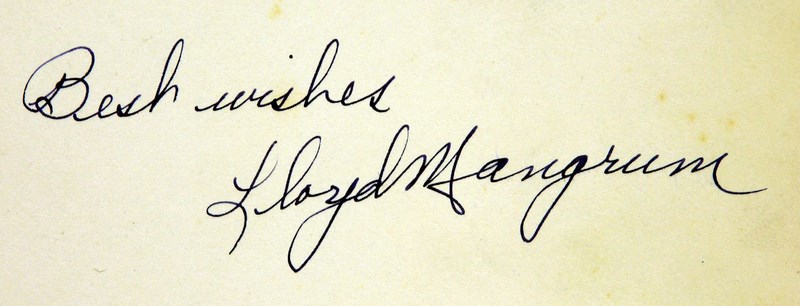 Best wishes
Lloyd Mangrum